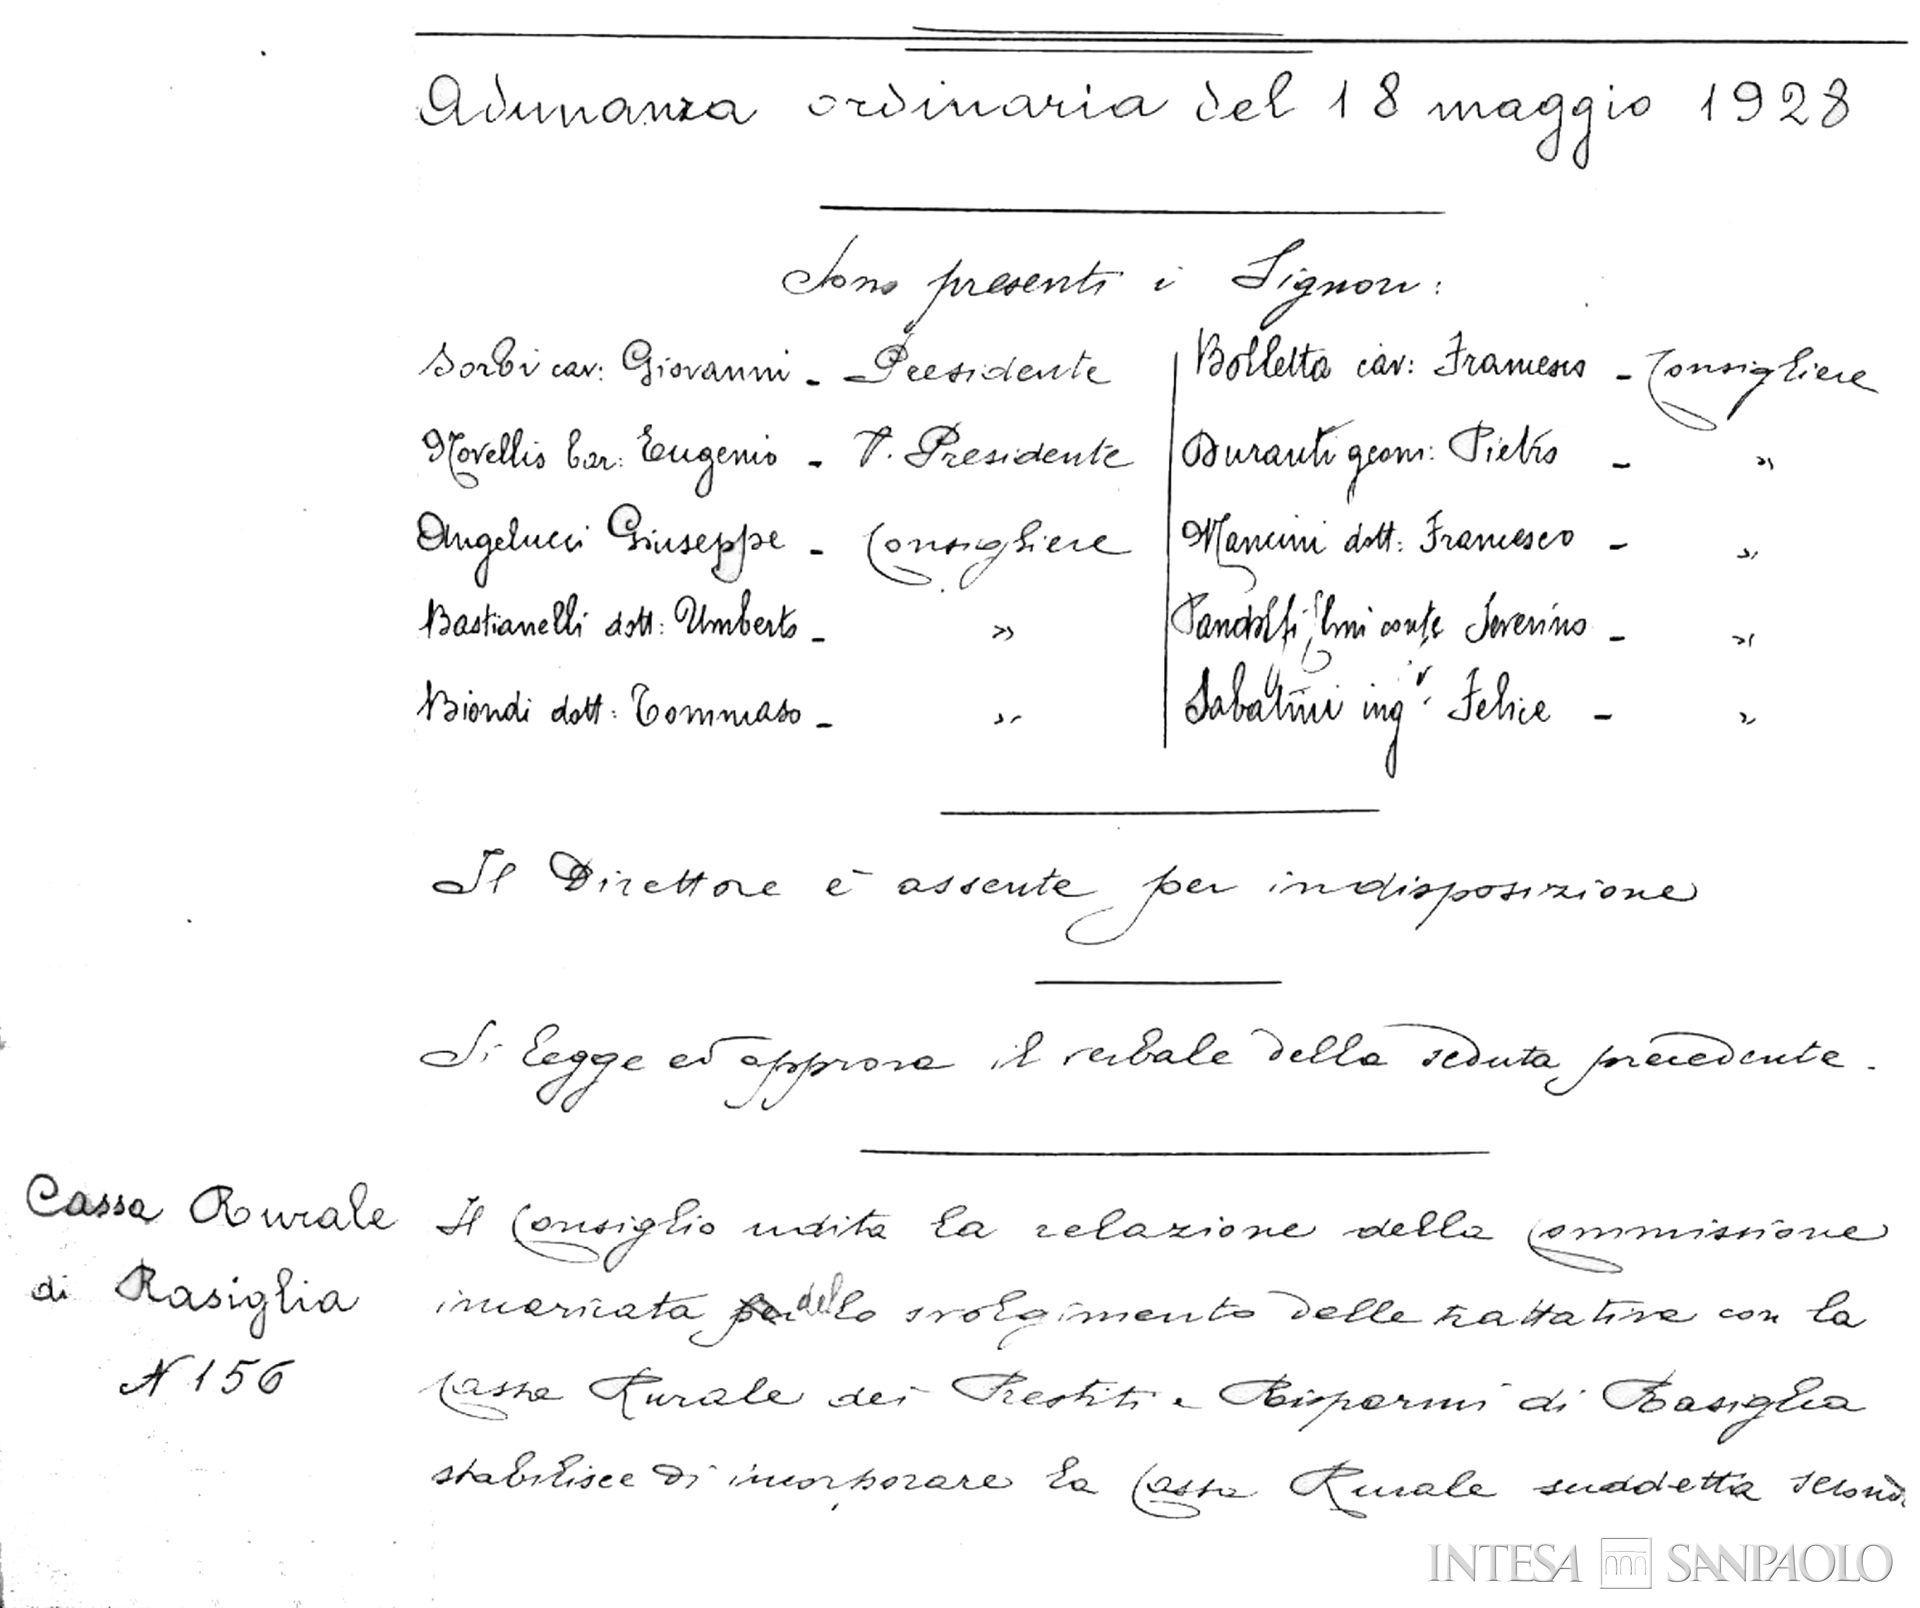 Adunanza ordinaria del 18 maggio 1928
Sono presenti i Signori:
Sorbi cav: Giovanni - Presidente
Novellis bar: Eugenio - V. Presidente
Angelucci Giuseppe - Consigliere
Bastianelli dott: Umberto - »
Biondi dott: Tommaso - »
Bolletta cav: Francesco - Consigliere
Duranti geom: Pietro - »
Mancini dott: Francesco - »
Pandolfi Elmi conte Severino - »
Sabatini ingr. Felice - »
Il Direttore è assente per indisposizione
Si legge ed approva il verbale della seduta precedente.
Cassa Rurale
di Rasiglia
N 156
Il Consiglio udita la relazione della Commissione
incaricata per dello svolgimento delle trattative con la
Cassa Rurale dei Prestiti e Risparmi di Rasiglia
stabilisce di incorporare la Cassa Rurale suddetta secondo
INTESA SANPAOLO